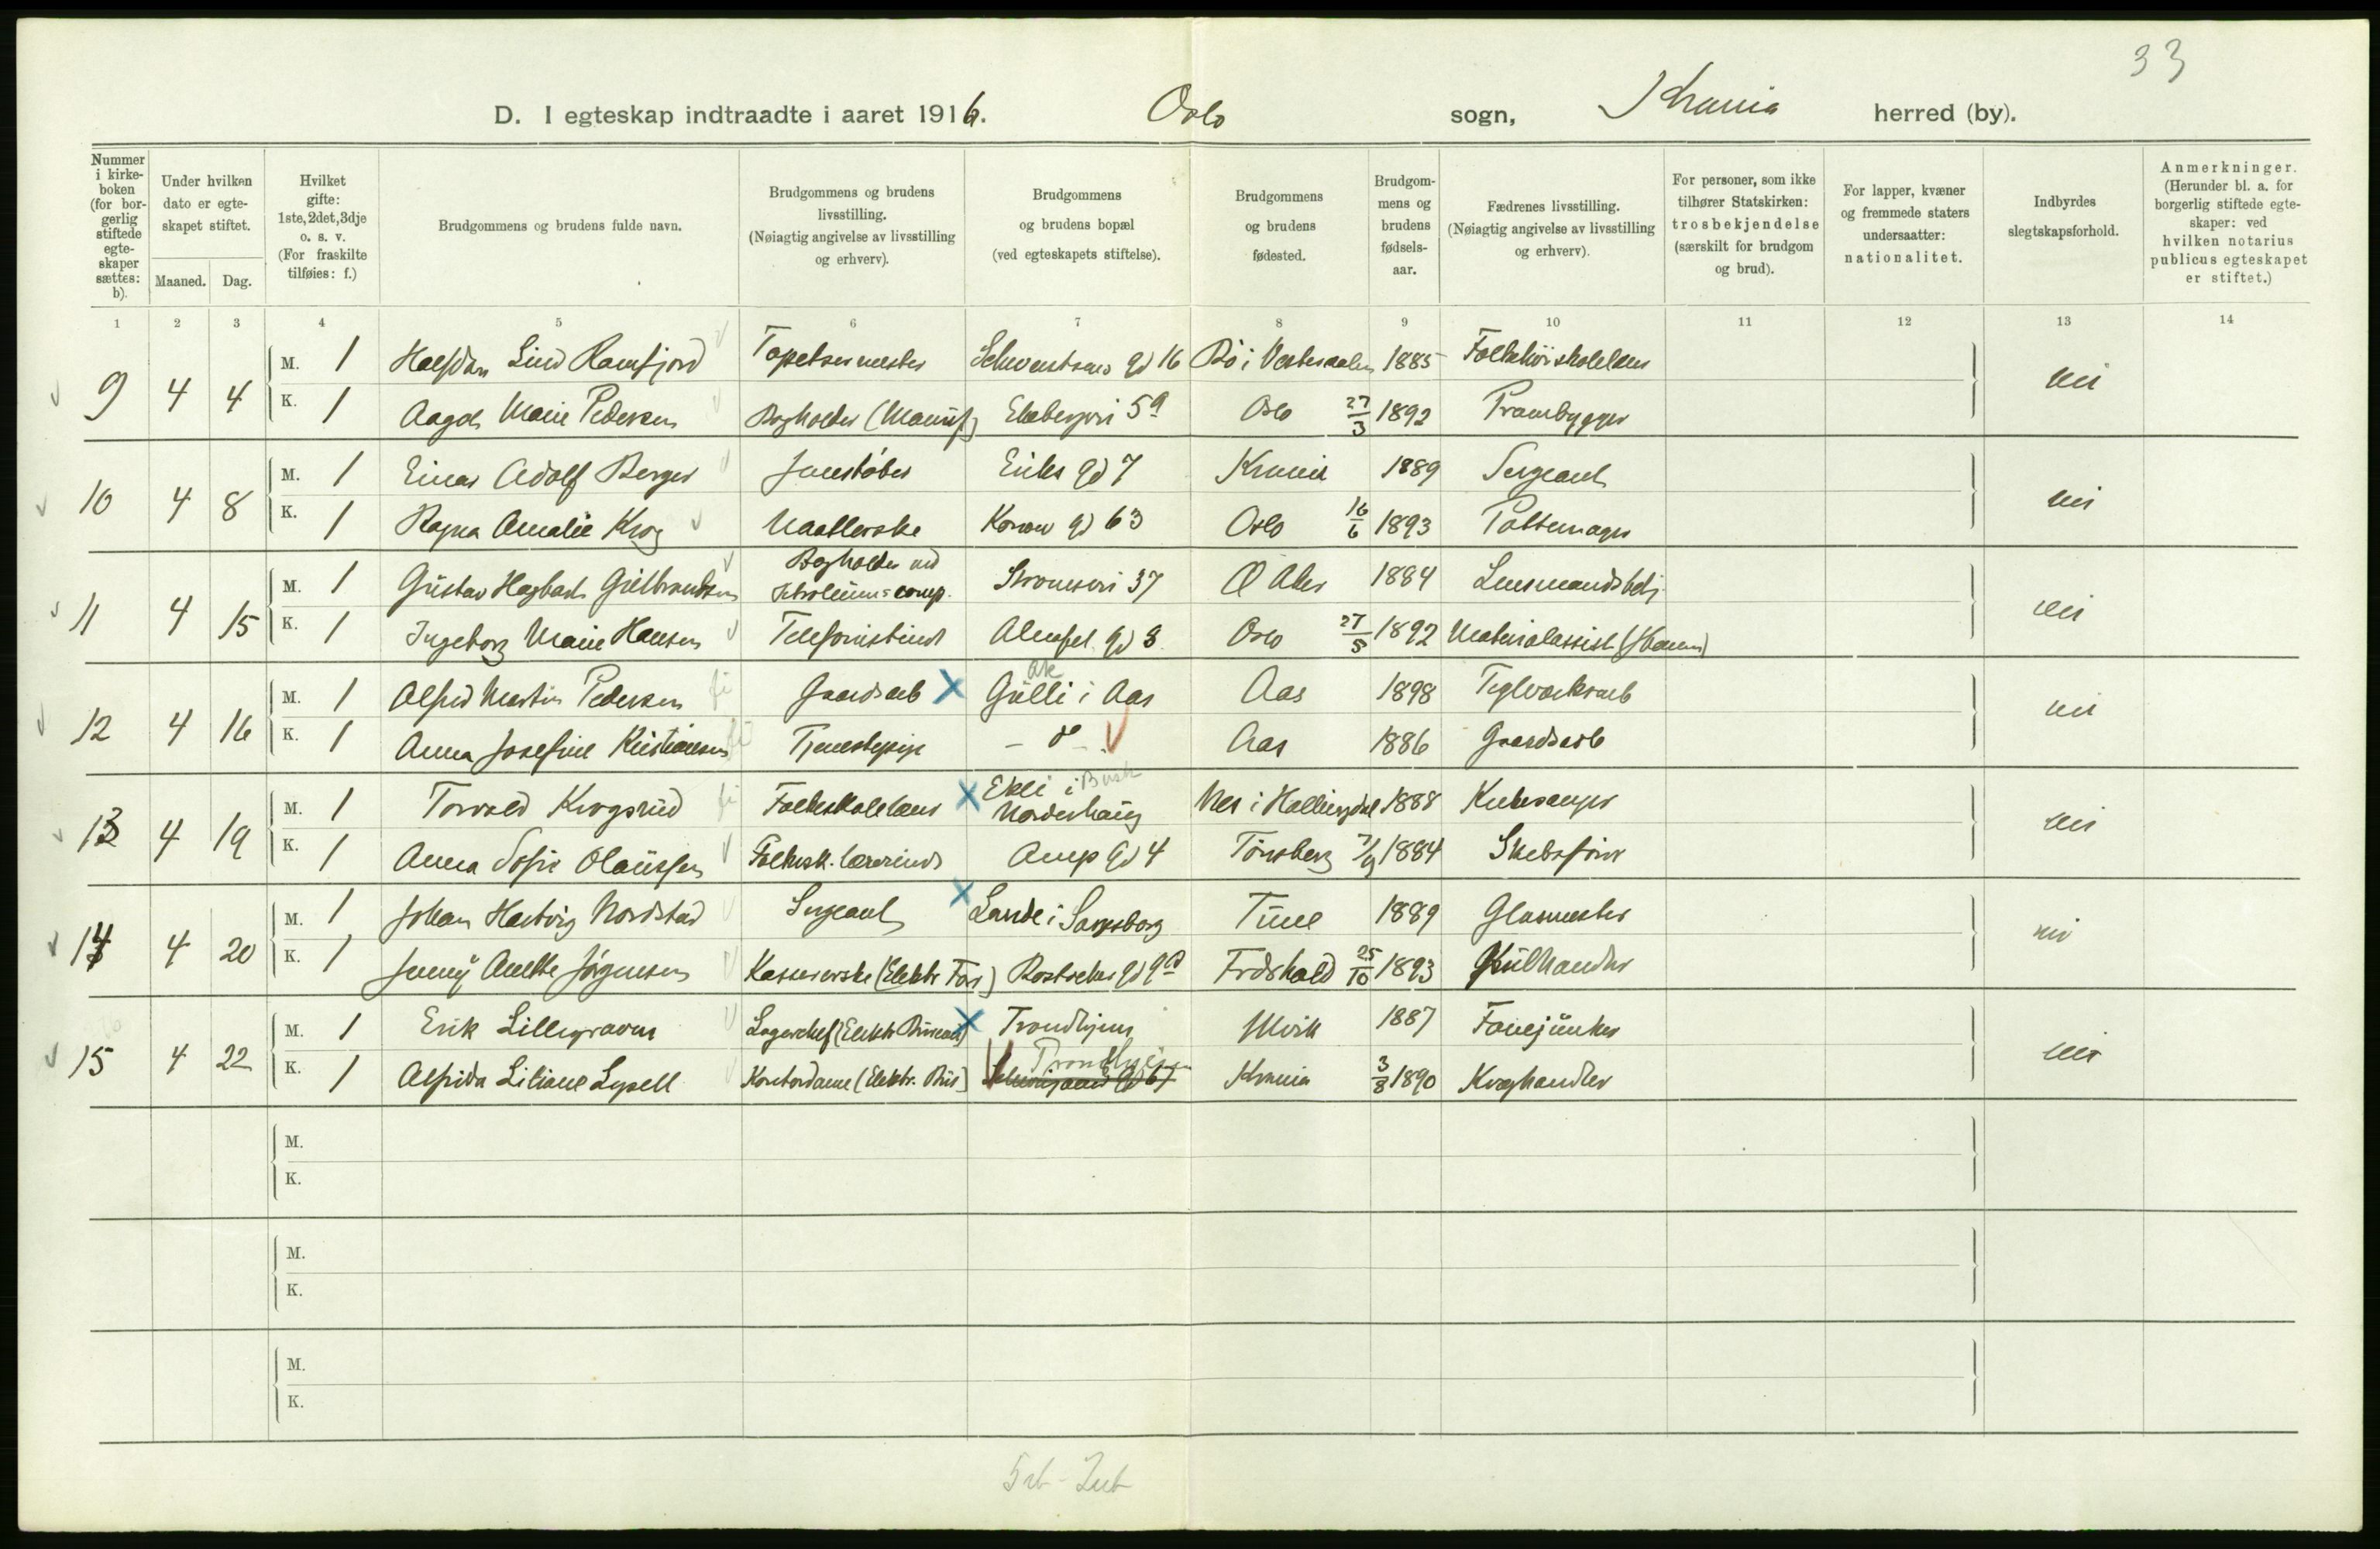 33
D. I egteskap indtraadte i aaret 1916. Oslo sogn, Krania herred (by).
Nummer i kirkeboken (for borgerlig stiftede egteskaper sættes: b).
Under hvilken dato er egteskapet stiftet.
Maaned. Dag.
Hvilket gifte: 1ste, 2det, 3dje o. s. v. (For fraskilte tilføies: f.)
Brudgommens og brudens fulde navn.
Brudgommens og brudens livsstilling. (Nøiagtig angivelse av livsstilling og erhverv).
Brudgommens og brudens bopæl (ved egteskapets stiftelse).
Brudgommens og brudens fødested.
Brudgommens og brudens fødselsaar.
Fædrenes livsstilling. (Nøiagtig angivelse av livsstilling og erhverv).
For personer, som ikke tilhører Statskirken: trosbekjendelse (særskilt for brudgom og brud).
For lapper, kvæner og fremmede staters undersaatter: nationalitet.
Indbyrdes slegtskapsforhold.
Anmerkninger. (Herunder bl. a. for borgerlig stiftede egteskaper: ved hvilken notarius publicus egteskapet er stiftet.)
1 2 3 4 5 6 7 8 9 10 11 12 13 14
9 4 4 M. 1 Halfdan Lind Ramfjord Tapetsermester Schweitsers gd 16 Bö i Vesteraalen 1885 Folkehöiskolelærer nei
K. 1 Aagot Marie Pedersen Bogholder (Manuf) Ekebergvei 5a Oslo 27/3 1892 Prambygger
10 4 8 M. 1 Einar Adolf Berger Jernstöber Eriks gd 7 Krania 1889 Sergeant nei
K. 1 Ragna Amalie Krog Maatlerske Konow gd 63 Oslo 16/6 1893 Pottemager
11 4 15 M. 1 Gustav Hagbart Gulbrandsen Bogholder ved Petroleums comp. Stromsvei 37 Ø Aker 1884 Lensmandsbetj nei
K. 1 Ingeborg Marie Hansen Telefonistinde Alnafet. gd 8 Oslo 27/5 1892 Materialassist
12 4 16 M. 1 Alfred Martin Pedersen Gaardsarb X Gulli i Aas Ak Aas 1898 Teglverksarb nei
K. 1 Anna Josefine Kristiansen Tjenestepige - do - Aas 1886 Gaardsarb
13 4 19 M. 1 Torvald Krogsrud Folkeskolelærer X Ekli i Norderhaug Busk Nes i Hallingdal 1888 Kirkesanger nei
K. 1 Anna Sofie Olaussen Folkesk. lærerinde Amp gd 4 Tönsberg 7/9 1884 Skibsförer
14 4 20 M. 1 Johan Hartvig Nordstad Sergeant X Lande i Sarpsborg Tune 1889 Glasmester nei
K. 1 Jenny Anette Jörgensen Kassererske (Elektr For) Rostockes gd 9a Frdshald 25/10 1893 Kulhandler
15 4 22 M. 1 Erik Lillegraven Lagerchef (Elektr Bureau) X Trondhjem Ulvik 1887 Fanejunker nei
K. 1 Alfrida Liliane Lysell Kontordame (Elektr. Bür) Trondhjem Krania 3/8 1890 Kreghandler
M.
K.
M.
K.
M.
K.